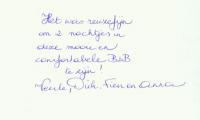 Het was reuzefijn
om 2 nachtjes in
deze mooie en
comfortabele B&B
te zijn!
Veerle, Dirk, Fien en Anna